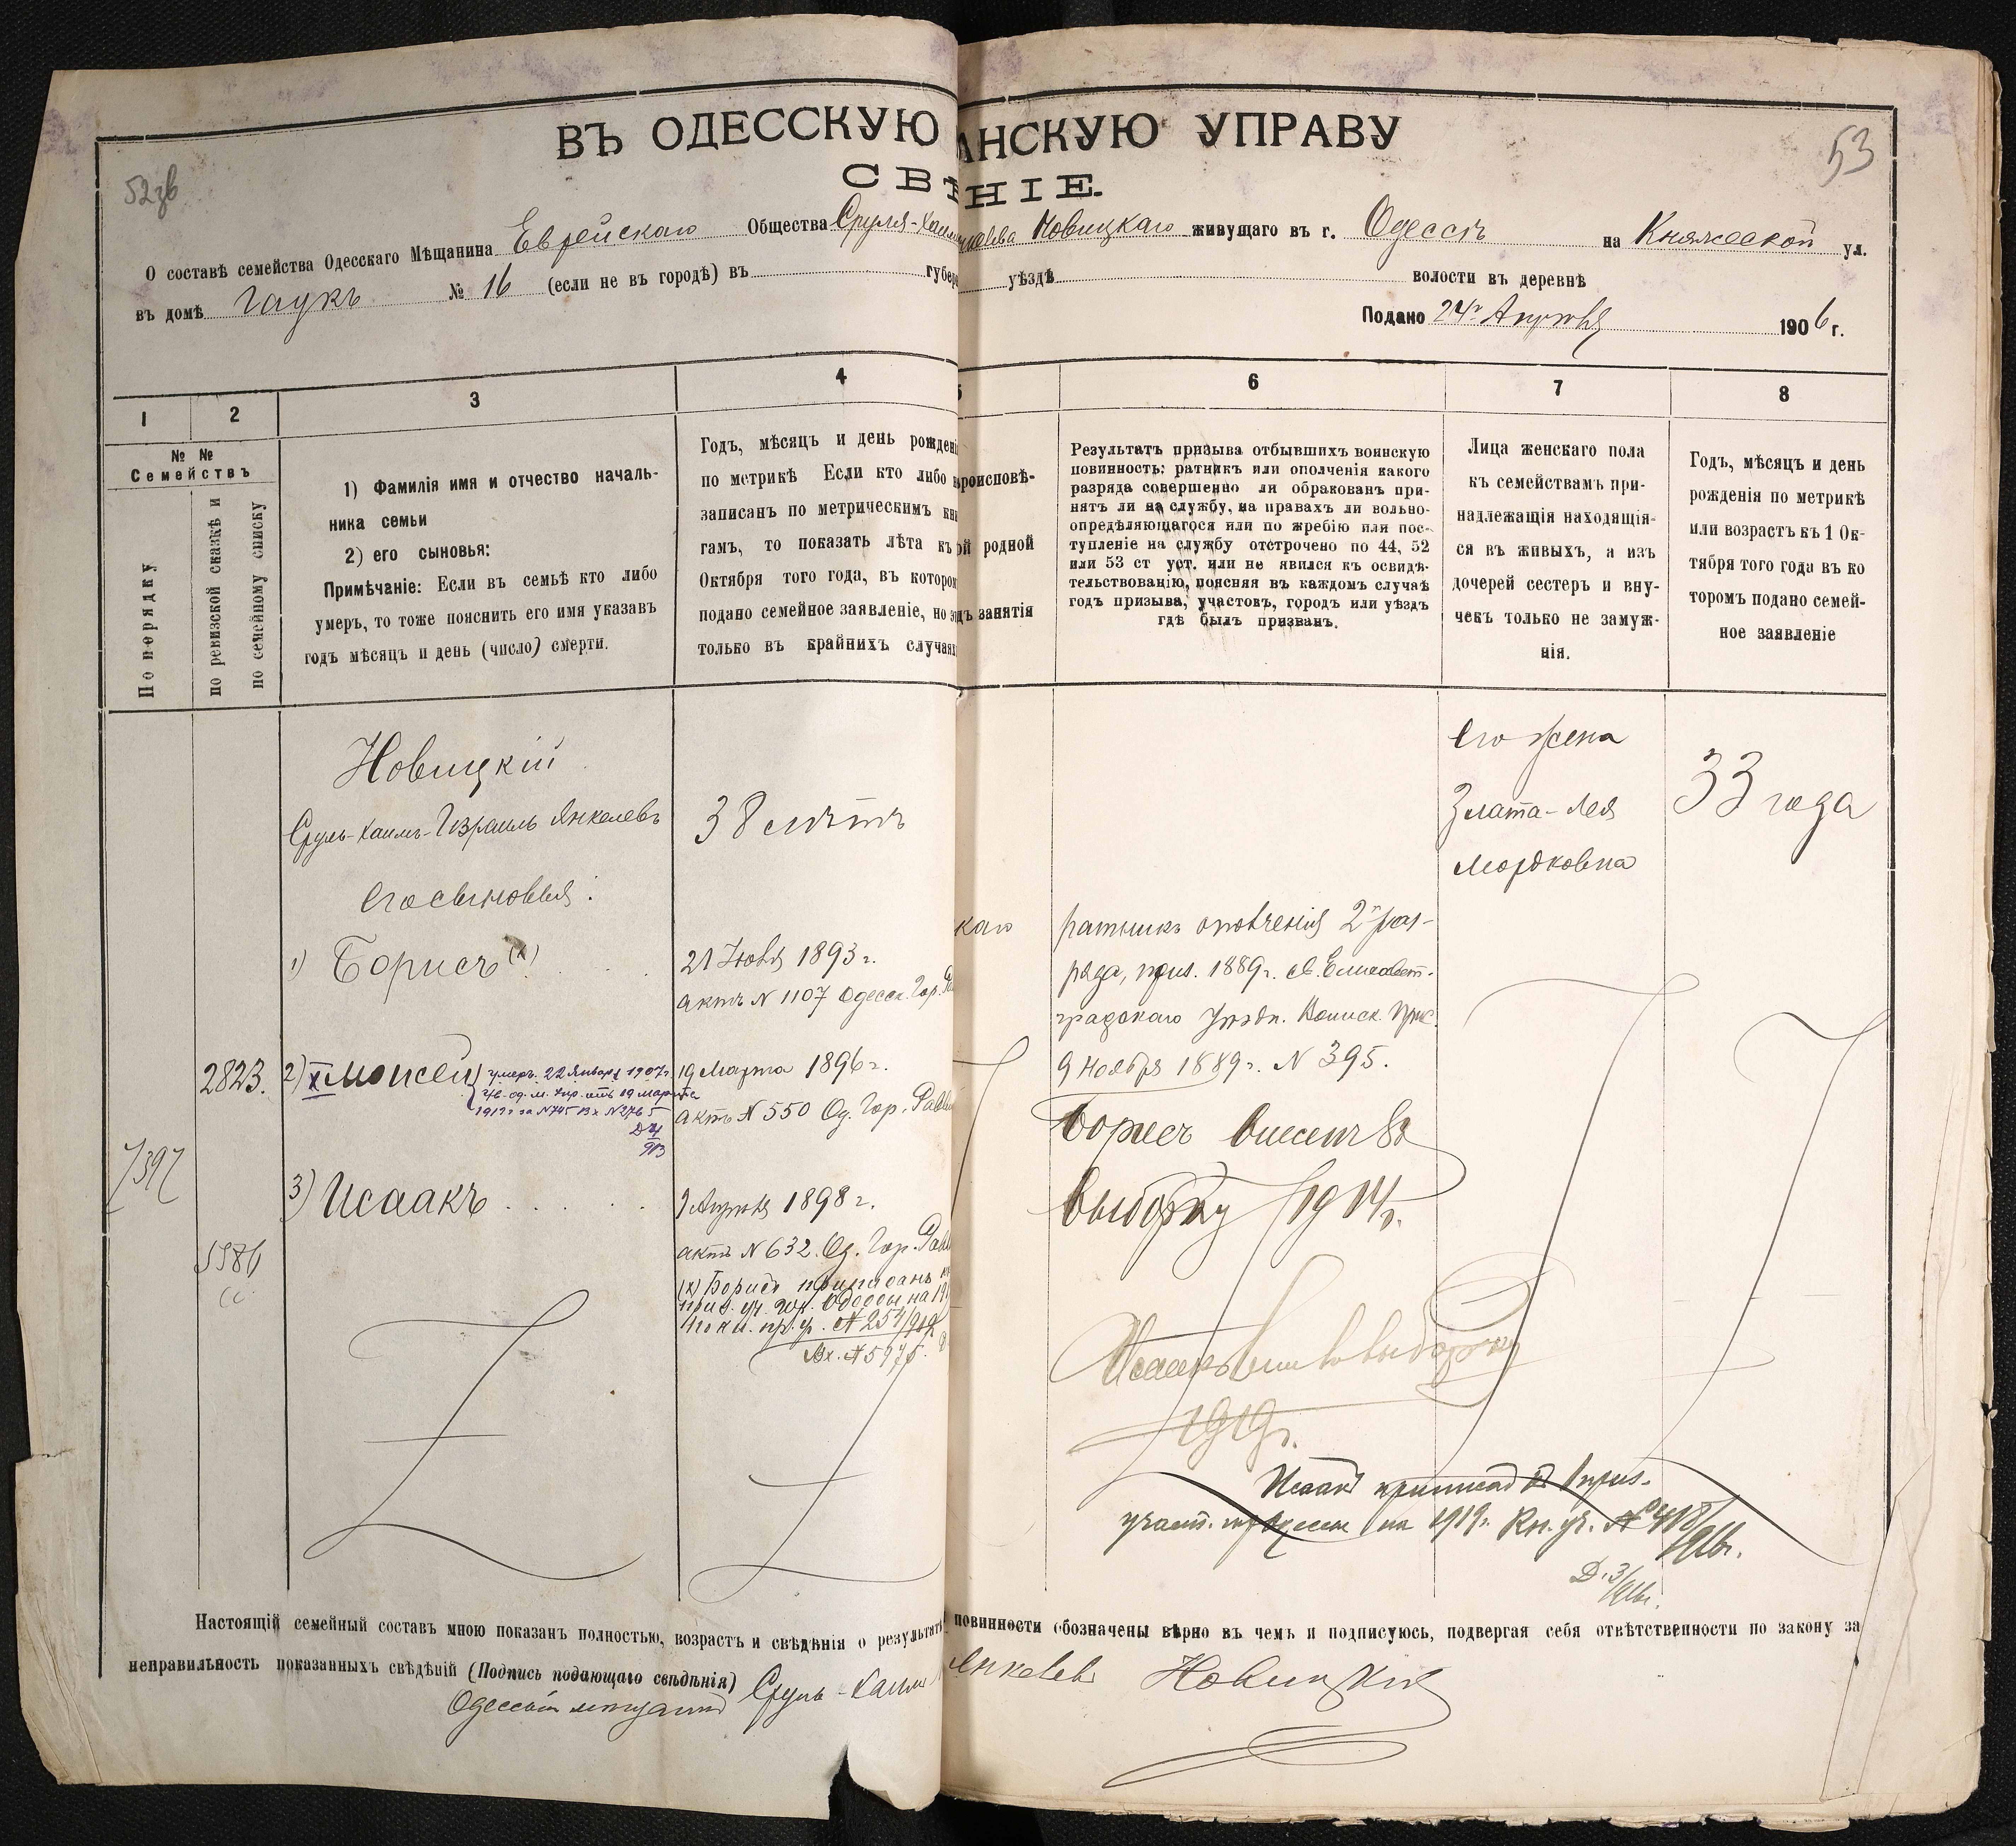 ВЪ ОДЕССКУЮ АНСКУЮ УПРАВУ
СВѢ НІЕ.
53
О составѣ семейства Одесскаго Мѣщанина Еврейскаго Общества Сруля-Хаим Новицкаго живущаго въ г. Одессѣ на Княжеской ул.
въ домѣ Гаукъ № 16 (если не въ городѣ) въ губер уѣздѣ волости въ деревнѣ
Подано 24го Апрѣля 1906 г.
1
2
3
4
5
6
7
8
№ №
Семействъ
По порядку
по ревизской сказкѣ и
по семейному списку
1) Фамилія имя и отчество началь-
ника семьи
2) его сыновья:
Примѣчаніе: Если въ семьѣ кто либо
умеръ, то тоже пояснить его имя указавъ
годъ мѣсяцъ и день (число) смерти.
Годъ, мѣсяцъ и день рожденi
по метрикѣ Если кто либо н
записанъ по метрическимъ кни
гамъ, то показать лѣта къ
Октября того года, въ которо
подано семейное заявленіе, но э
только въ крайнихъ случая
роисповѣ-
ой родной
дъ занятія
Результатъ призыва отбывшихъ воинскую
повинность: ратникъ или ополченія какого
разряда совершенно ли обракованъ при-
нятъ ли на службу, на правахъ ли вольно-
опредѣляющагося или по жребію или пос-
тупленіе на службу отсрочено по 44, 52
или 53 ст уст. или не явился къ освидѣ-
тельствованію, поясняя въ каждомъ случаѣ
годъ призыва, участокъ, городъ или уѣздъ
гдѣ былъ призванъ.
Лица женскаго пола
къ семействамъ при-
надлежащія находящія-
ся въ живыхъ, а изъ
дочерей сестеръ и вну-
чекъ только не замуж-
нія.
Годъ, мѣсяцъ и день
рожденія по метрикѣ
или возрастъ къ 1 Ок-
тября того года въ ко
торомъ подано семей-
ное заявленіе
Новицкій
Сруль-Хаимъ-Израиль Янкелевъ
38 лѣтъ
Его сыновья:
1) Борисъ (х)
21 Іюня 1893 г.
актъ N 1107 Одесск. Гор.
2823.
2) х Моисей
умеръ 22 Января 1907 г.
19 Марта 1896 г.
актъ N 550 Од. Гор.
7397
3) Исаакъ
9 Апрѣля 1898 г.
актъ N 632. Од. Гор.
(х) Борисъ приписанъ
Вх. N 5975.
каго
ратникъ ополченія 2го раз-
ряда, приз. 1889 г. св. Елисавет-
градскаго Уѣздн. Воинск. Прис.
9 Ноября 1889 г. N 395.
Борисъ внесенъ въ
выборку 1914 г.
Исаакъ внес. въ выборку
1919 г.
Исаакъ приписанъ приз.
участ. г. Одессы на 1919 г. Кн. уч.
Его жена
Злата-Лея
Мордковна
33 года
Настоящій семейный составъ мною показанъ полностью, возрастъ и свѣдѣнія о результатѣ повинности обозначены вѣрно въ чемъ и подписуюсь, подвергая себя отвѣтственности по закону за
неправильность показанныхъ свѣдѣній (Подпись подающаго свѣдѣнія) Сруль-Хаимъ Янкелевъ Новицкій
Одесскій мѣщанинъ